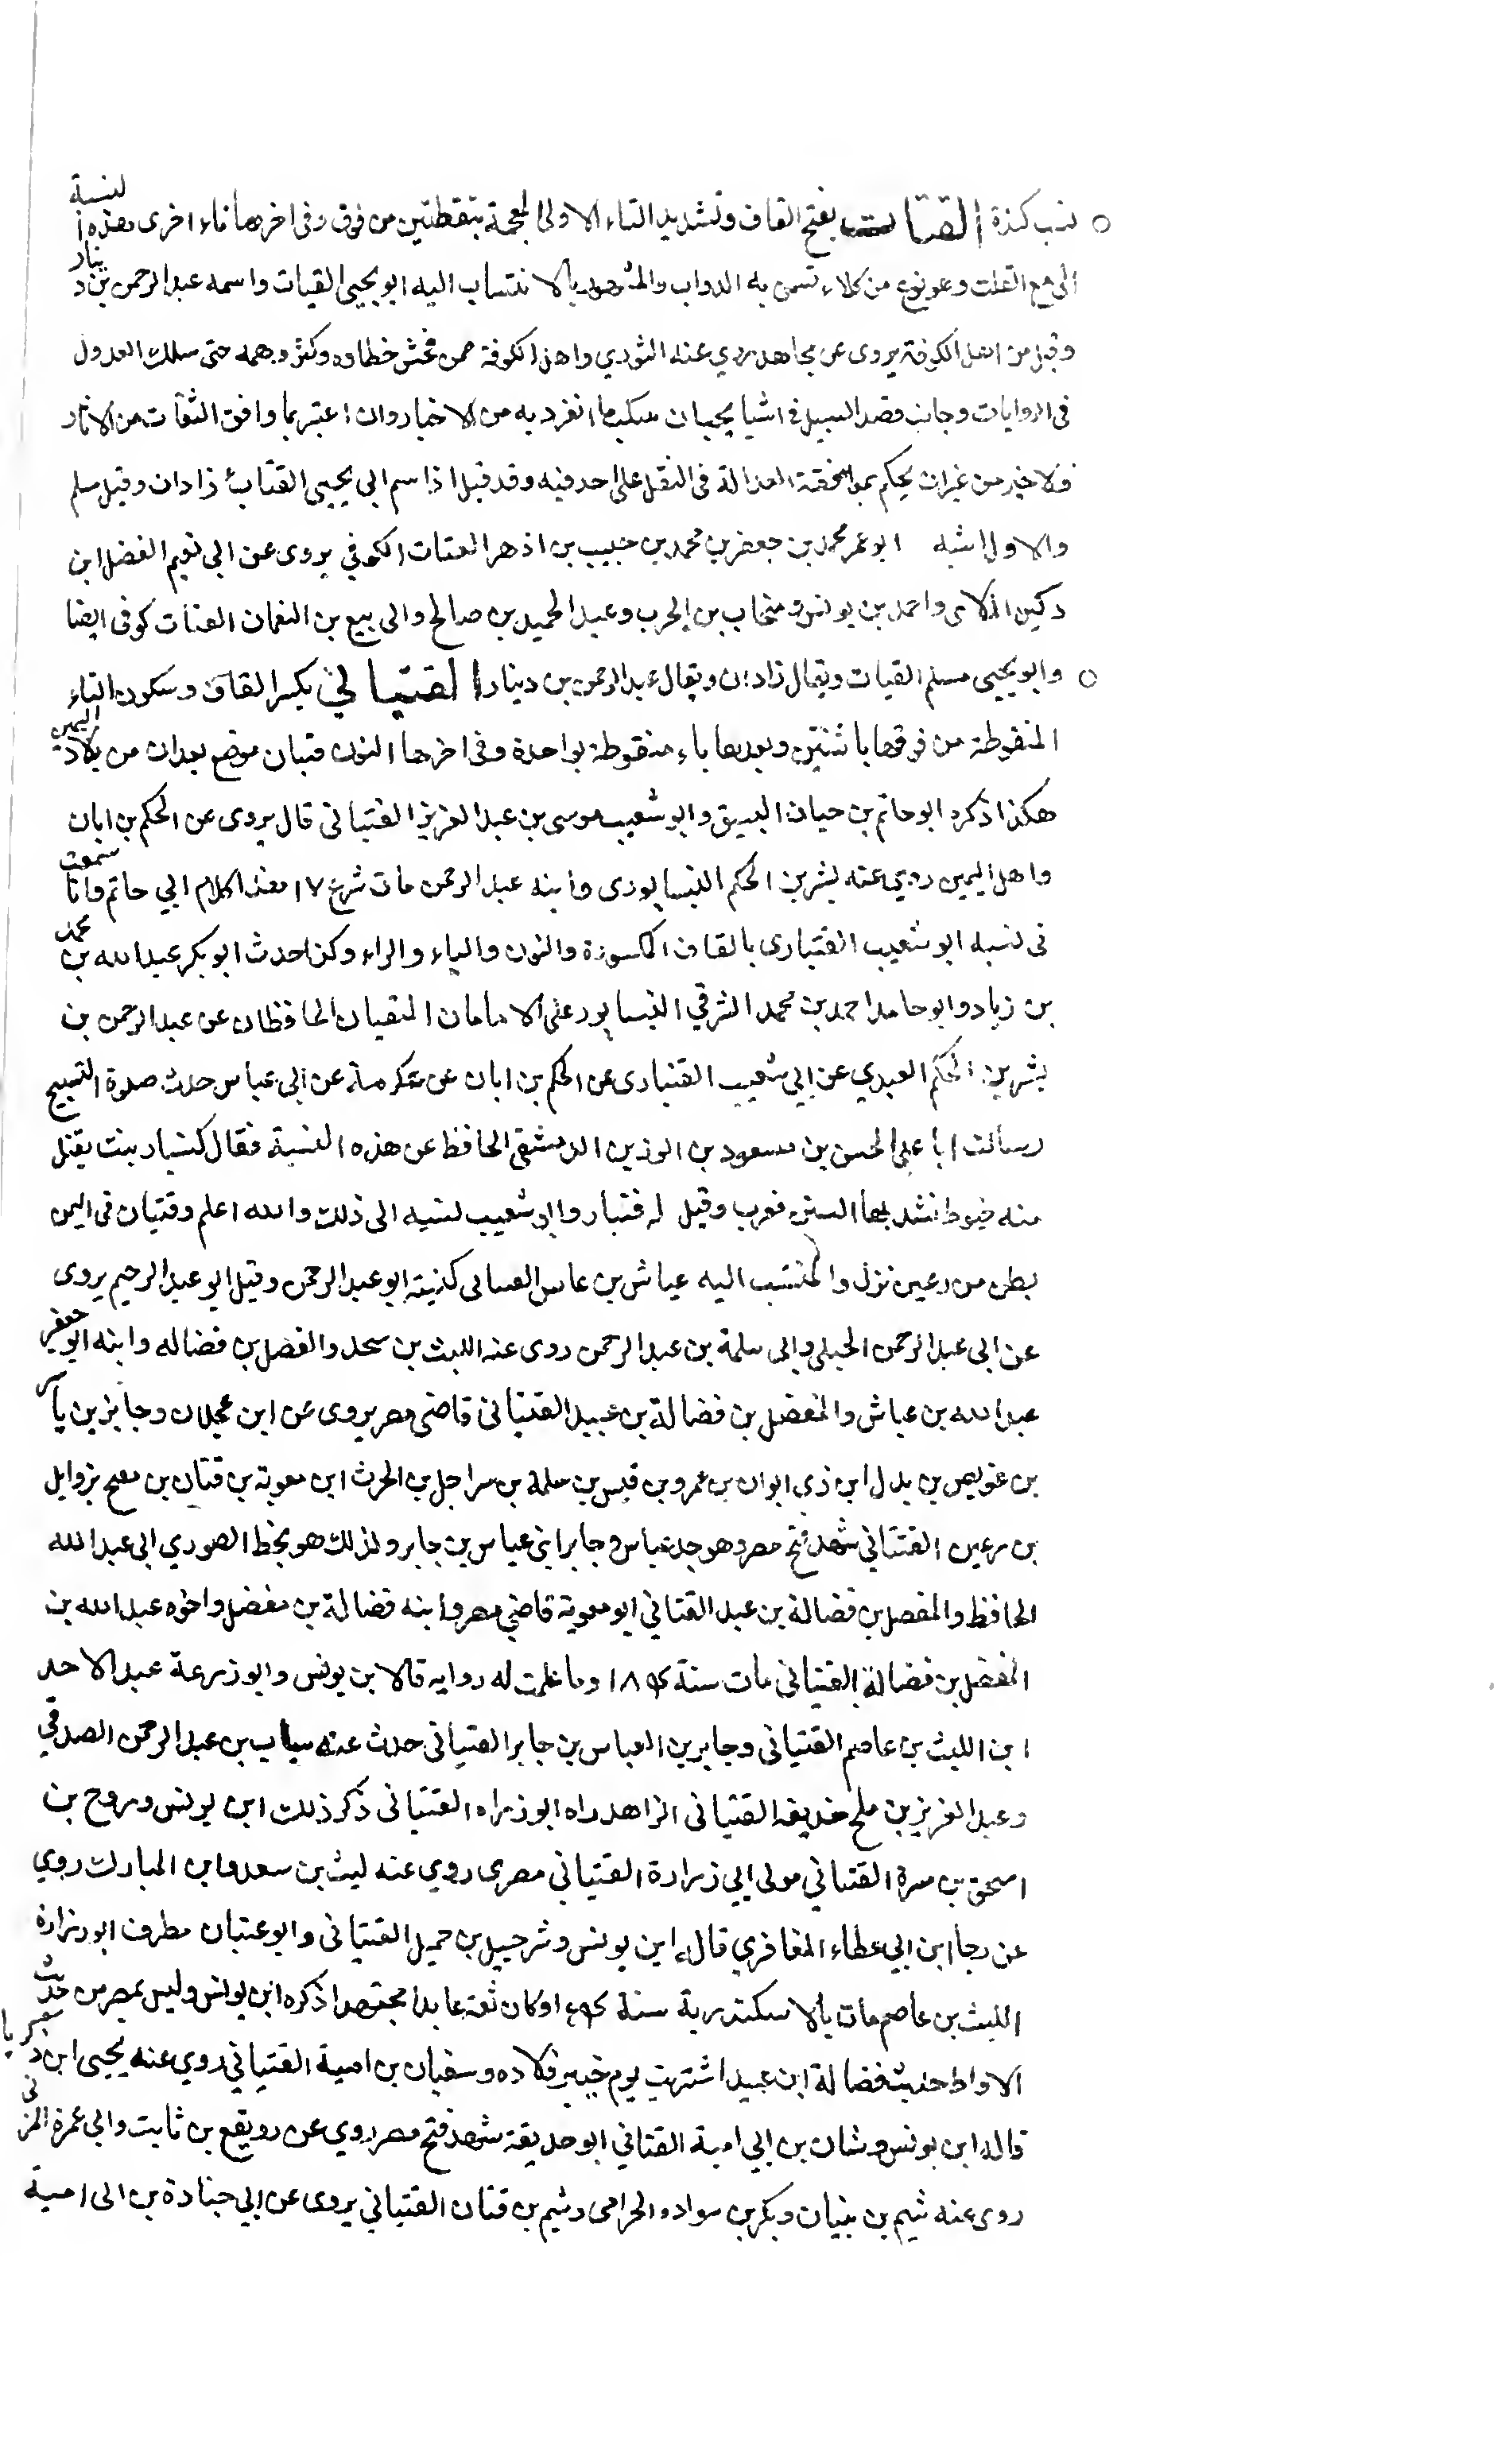 نسب كندة القتات بفتح القاف وتشديد التاء الاولى المعجمة بنقطتين من فوق وفى اخرها تاء اخرى هذه النسبة
الى بيع القت وهو نوع من كلاء تسمن به الدواب والمشهور بالانتساب اليه ابو يحيى القتات واسمه عبد الرحمن بن دينار
وقيل من اهل الكوفة يروى عن مجاهد روي عنه الثوري واهل الكوفة ممن فحش خطاوه وكثر وهمه حتى سلك العدول
فى الروايات وجانب قصد السبيل فى اشيا يجبان ما انفرد به من الاخبار وان اعتبر بما وافق الثقات من الاثار
فلا خير من غيران يحكم العدالة فى النقل على احد فيه وقد قيل اذا اسم ابى يحيى القتات زاذان وقيل سلم
والاول اشبه ابو عمر محمد بن جعفر بن محمد بن حبيب بن ازهر القتات الكوفي يروى عن ابى نعيم الفضل ابن
دكين الملاى واحمد بن يونس ومنجاب بن الحرب وعبد الحميد بن صالح والى بيع بن النعمان القتات كوفى ايضا
وابو يحيى مسلم القتات ويقال زاذان ويقال عبد الرحمن بن دينار القتبا لي بكسر القاف وسكون التاء
المنقوطة من فوقها باثنتين وبعدها باء منقوطة بواحدة وفى اخرها النون قتبان موضع بعدان من بلاد اليمن
هكذا ذكره ابو حاتم بن حيان البستى وابو شعيب موسى بن عبد العزيز القتبانى قال يروى عن الحكم بن ابان
واهل اليمن روي عنه بشر بن الحكم النيسابورى وابنه عبد الرحمن مات هذا كلام ابي حاتم وانا سمعت
فى نسبه ابو شعيب القنبارى بالقاف المكسورة والنون والباء والراء وكذا حدث ابو بكر عبد الله بن محمد
بن زياد وابو حامد احمد بن محمد الشرقي النيسابور الامامان المتقيان الحافظان عن عبد الرحمن بن
بشر بن الحكم العبدي عن ابي شعيب القنبارى عن الحكم بن ابان عن عكرمة عن ابى عباس حدث صلوة التسبيح
وسالت ابا على الحسن بن مسعود بن الوزير الدمشقى الحافظ عن هذه النسبة فقال كنبار بنت يفتل
منه خيوط تشد بها السفن فعرب وقيل له قنبار وابو شعيب نسبه الى ذلك والله اعلم وقتبان فى اليمن
بطن من رعين نزل والمنتسب اليه عياش بن عباس القتبانى كنيته ابو عبد الرحمن وقيل ابو عبد الرحيم يروى
عن ابى عبد الرحمن الحبلى وابى سلمة بن عبد الرحمن روى عنه الليث بن سعد والفضل بن فضاله وابنه ابو جعفر
عبد الله بن عياش والمفضل بن فضالة بن عبيد القتبانى قاضى مصر يروى عن ابن عجلان وجابر بن ياسر
بن عويص بن بدل ابن ذي ايوان بن عمرو بن قيس بن سلمة بن سراحل بن الحرث ابن معوية بن قتبان بن مصبح بن وايل
بن رعين القتبانى شهد فتح مصر وهو جد عباس وجابر ابنى عباس بن جابر ولذلك هو بخط الصوري ابى عبد الله
الحافظ والمفضل بن فضالة بن عبيد القتبانى ابو معوية قاضى مصر وابنه فضالة بن مفضل واخوه عبد الله بن
المفضل بن فضالة القتبانى مات سنة وما علمت له روايه قال ابن يونس وابو زرعة عبد الاحد
ابن الليث بن عاصم القتبانى وجابر بن العباس بن جابر القتبانى حدث عنه بن عبد الرحمن الصدفي
وعبد العزيز بن ملح خديفه القتبانى الزاهد راه ابو زراره القتبانى ذكر ذلك ابن يونس وروح بن
اسحق بن سرة القتبانى مولى ابي زرارة القتبانى مصرى روي عنه ليث بن سعد وابن المبارك روي
عن رجا ابن ابى عطاء المغافري قاله ابن يونس وشرحبيل بن حميل القتبانى وابو عتبان مطرف ابو زرارة
الليث بن عاصم مات بالاسكندرية سنة وكان ثقة عابدا مجتهدا ذكره ابن يونس وليس بمصر من حديث
الا واط حديث فضالة ابن عبيد اشتريت يوم خيبر قلاده وسفيان بن امية القتبانى روي عنه يحيى ابن زكريا
قاله ابن يونس وشان بن ابى امية القتبانى ابو حذيفة شهد فتح مصر روى عن رويفع بن ثابت وابى عمرة المزنى
روى عنه شيم بن بيتان وبكر بن سواده الحرامى وشيم بن قتبان القتبانى يروى عن ابي جنادة بن ابى امية